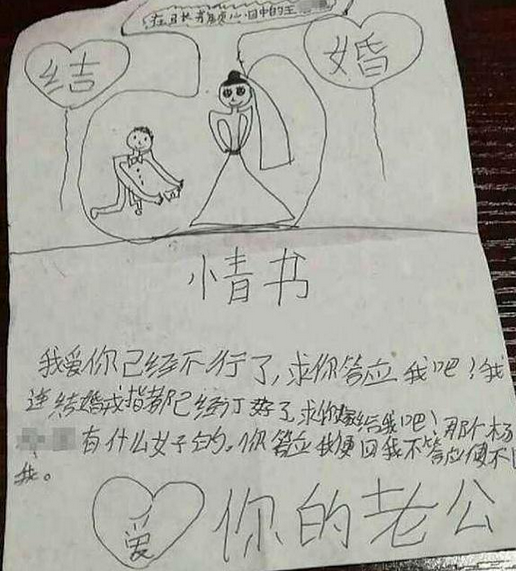 在张孝顾心目中的王
结 婚
情书
我爱你已经不行了,求你答应我吧!我
连结婚戒指都已经订好了求你嫁给我吧!那个杨
有什么女子的。你答应我便回我不答应便不
我。
爱 你的老公